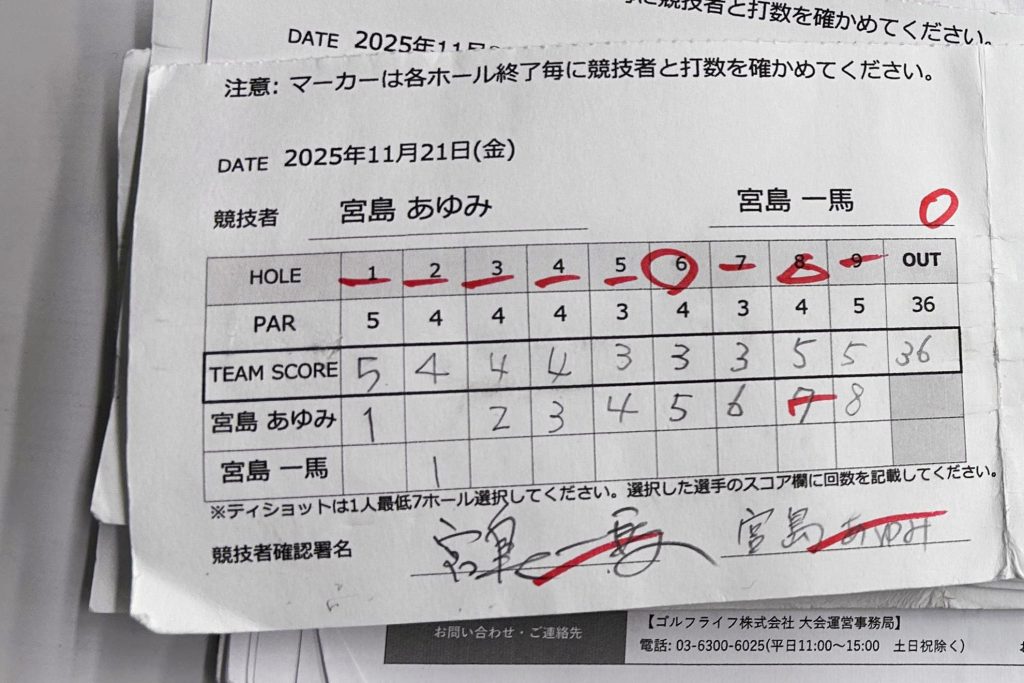 に競技者と打数を確かめてください。
DATE 2025年11月
注意: マーカーは各ホール終了毎に競技者と打数を確かめてください。
DATE 2025年11月21日(金)
競技者 宮島 あゆみ 宮島 一馬 0
HOLE 1 2 3 4 5 6 7 8 9 OUT
PAR 5 4 4 4 3 4 3 4 5 36
TEAM SCORE 5 4 4 4 3 3 3 5 5 36
宮島 あゆみ 1 2 3 4 5 6 7 8
宮島 一馬 1
※ティショットは1人最低7ホール選択してください。選択した選手のスコア欄に回数を記載してください。
競技者確認署名 宮島 一馬 宮島 あゆみ
【ゴルフライフ株式会社 大会運営事務局】
お問い合わせ・ご連絡先
電話: 03-6300-6025(平日11:00～15:00 土日祝除く)